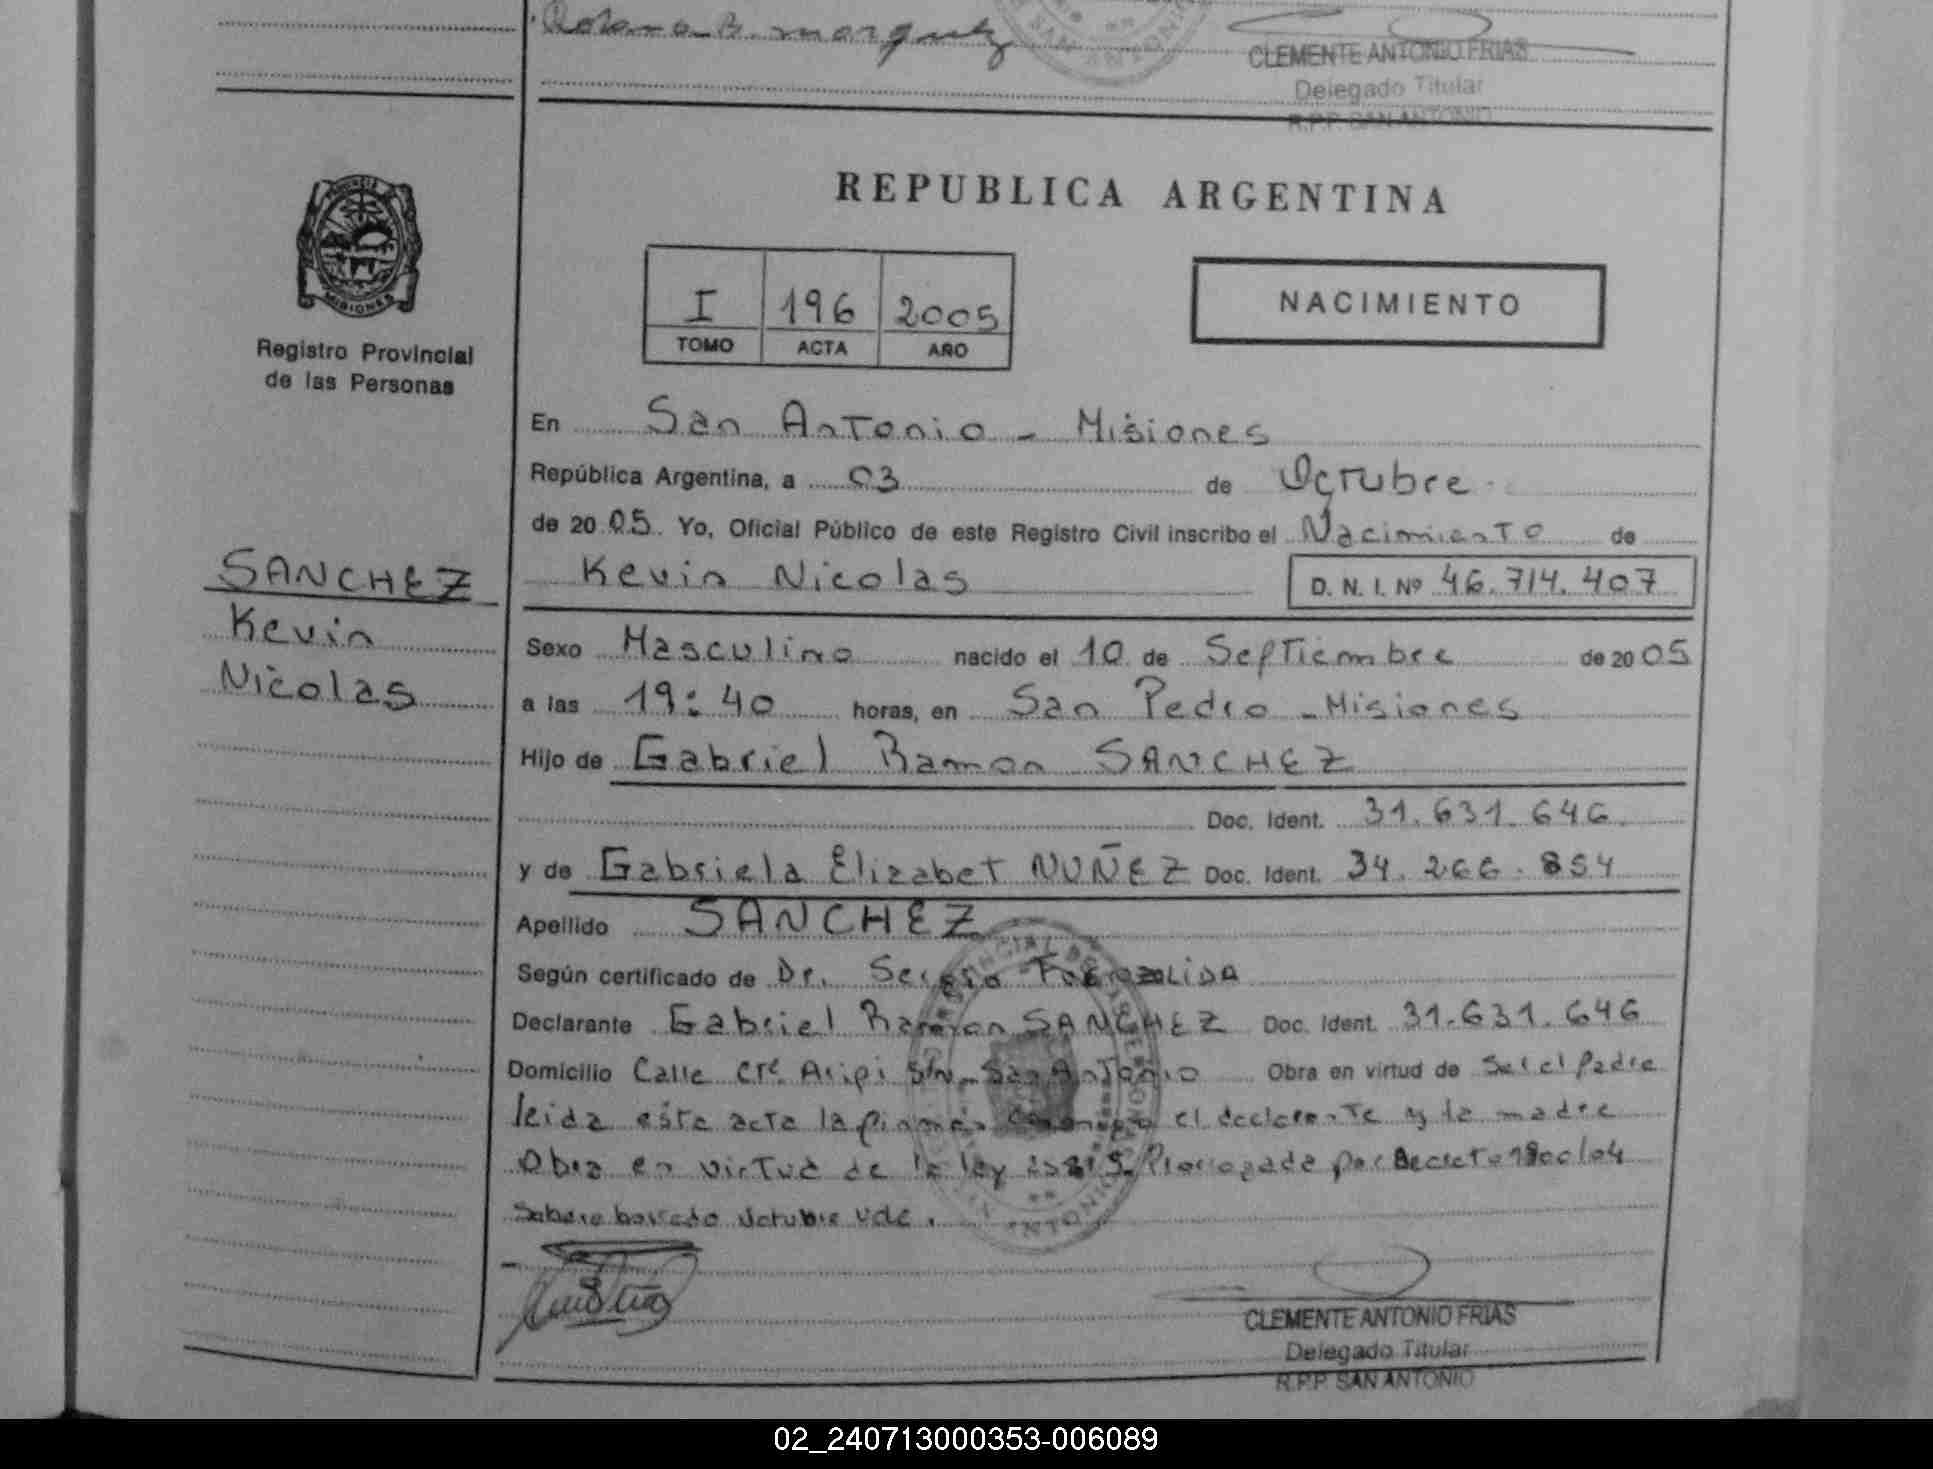 marquez
CLEMENTE ANTONIO FRIAS
Delegado Titular
R.P.P. SAN ANTONIO
REPUBLICA ARGENTINA
MISIONES
Registro Provincial
de las Personas
I 196 2005
TOMO ACTA AÑO
NACIMIENTO
En San Antonio - Misiones
República Argentina, a 03 de Octubre
de 20 05 Yo, Oficial Público de este Registro Civil inscribo el Nacimiento de
Kevin Nicolas D. N. I. Nº 46.714.407
SANCHEZ
Kevin
Nicolas
Sexo Masculino nacido el 10 de Septiembre de 20 05
a las 19:40 horas, en San Pedro - Misiones
Hijo de Gabriel Ramon SANCHEZ
Doc. Ident. 31.631.646.
y de Gabriela Elizabet NUÑEZ Doc. Ident. 34.266.854
Apellido SANCHEZ
Según certificado de Dr. Sergio
Declarante Gabriel Ramon SANCHEZ Doc. Ident. 31.631.646
Domicilio Calle Cte. Aripi S/N - San Antonio Obra en virtud de Ser el Padre
leida esta acta la firman el declarante y la madre
Obra en virtud de la ley Prorrogada por Decreto 1800/04
Sobre borrado Octubre Vale.
CLEMENTE ANTONIO FRIAS
Delegado Titular
R.P.P. SAN ANTONIO
02_240713000353-006089